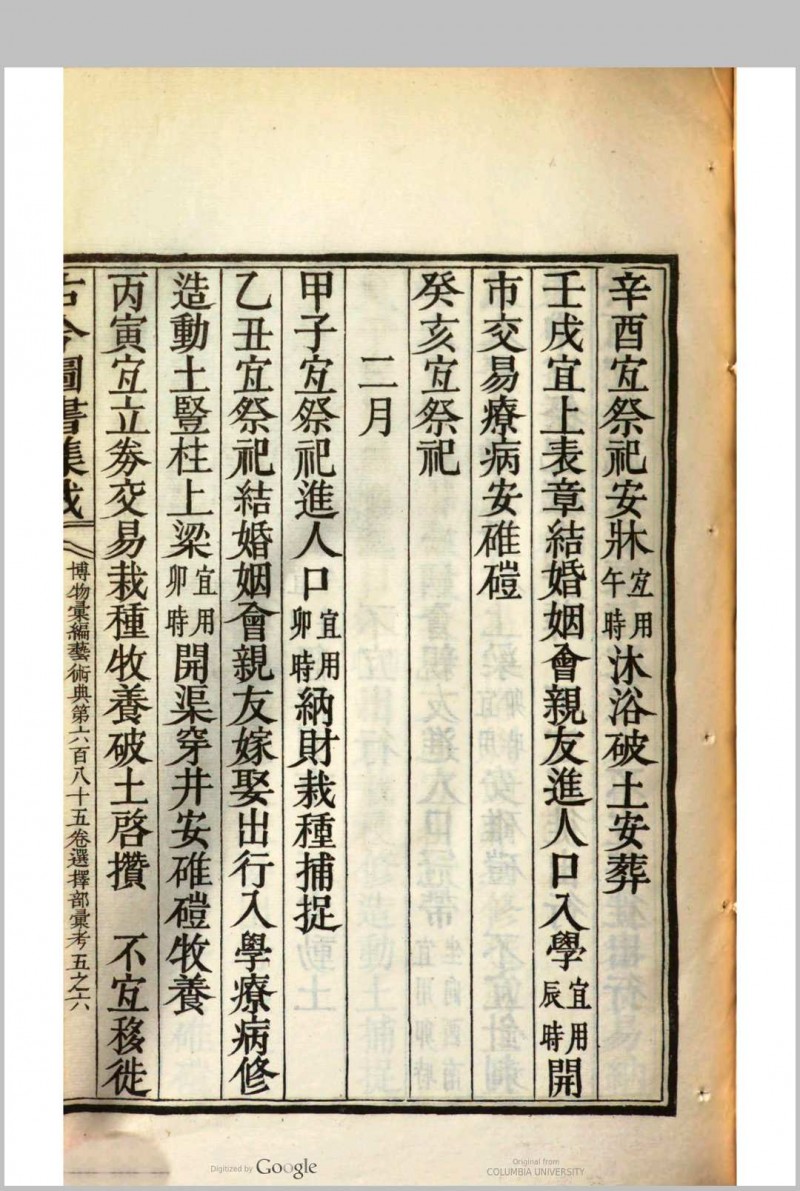 辛酉宜祭祀安牀宜用午時沐浴破土安葬
壬戌宜上表章結婚姻會親友進人口入學宜用辰時開
市交易療病安碓磑
癸亥宜祭祀
二月
甲子宜祭祀進人口宜用卯時納財栽種捕捉
乙丑宜祭祀結婚姻會親友嫁娶出行入學療病修
造動土豎柱上梁宜用卯時開渠穿井安碓磑牧養
丙寅宜立券交易栽種牧養破土啓攢　不宜移徙
古今圖書集成
博物彙編藝術典第六百八十五卷選擇部彙考五之六
Digitized by Google
Original from
COLUMBIA UNIVERSITY